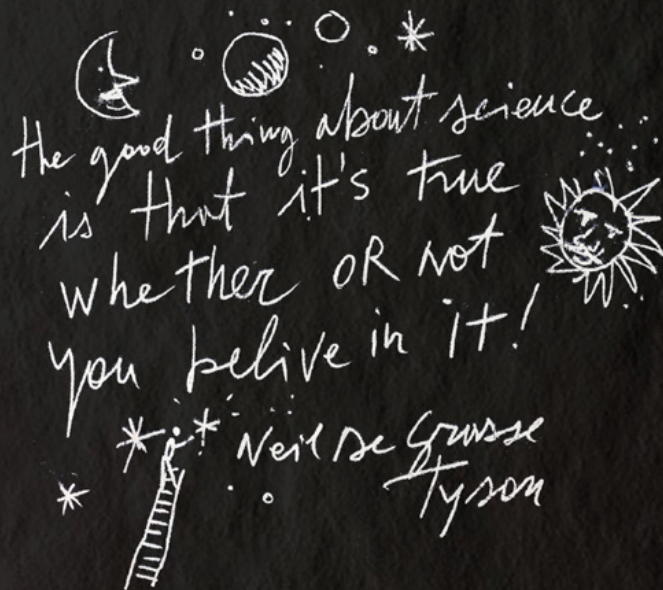 the good thing about science
is that it's true
whether OR not
you belive in it!
Neil De Grasse
Tyson